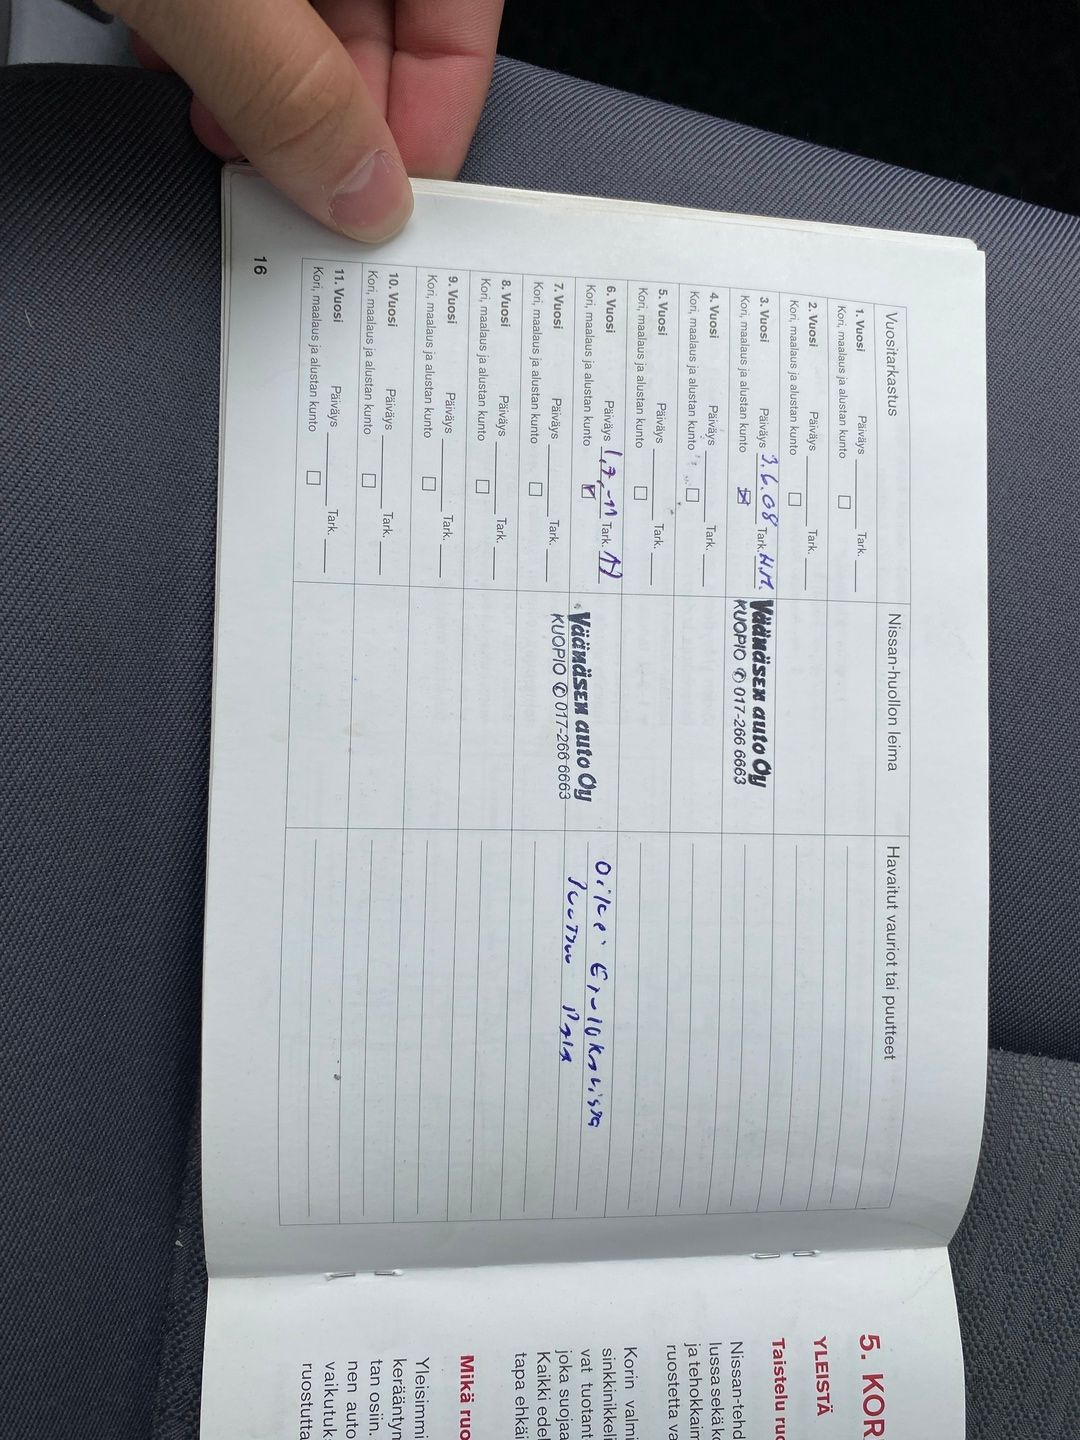 Vuositarkastus Nissan-huollon leima Havaitut vauriot tai puutteet
1. Vuosi Päiväys Tark.
Kori, maalaus ja alustan kunto
2. Vuosi Päiväys Tark.
Kori, maalaus ja alustan kunto
3. Vuosi Päiväys 3.6.08 Tark. H.M.
Kori, maalaus ja alustan kunto
Väänäsen auto Oy
KUOPIO ✆ 017-266 6663
4. Vuosi Päiväys Tark.
Kori, maalaus ja alustan kunto
5. Vuosi Päiväys Tark.
Kori, maalaus ja alustan kunto
6. Vuosi Päiväys 1.7.-11 Tark.
Kori, maalaus ja alustan kunto
Väänäsen auto Oy
KUOPIO ✆ 017-266 6663
Oikea
Puutuu Pala
7. Vuosi Päiväys Tark.
Kori, maalaus ja alustan kunto
8. Vuosi Päiväys Tark.
Kori, maalaus ja alustan kunto
9. Vuosi Päiväys Tark.
Kori, maalaus ja alustan kunto
10. Vuosi Päiväys Tark.
Kori, maalaus ja alustan kunto
11. Vuosi Päiväys Tark.
Kori, maalaus ja alustan kunto
16
5. KOR
YLEISTÄ
Taistelu ruo
Nissan-tehd
lussa sekä ko
ja tehokkaim
ruostetta va
Korin valmi
sinkkinikkeli
vat tuotant
joka suojaa
Kaikki edel
tapa ehkäi
Mikä ruo
Yleisimmi
kerääntyn
tan osiin.
nen auto
vaikutuk
ruostutta